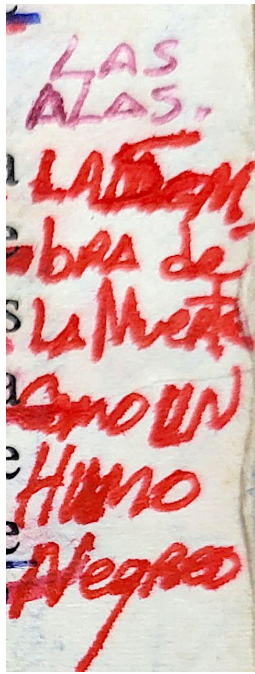 LAS
ALAS.
LA SOM
bRA de
LA Muerte
Como UN
HUMO
NegRo